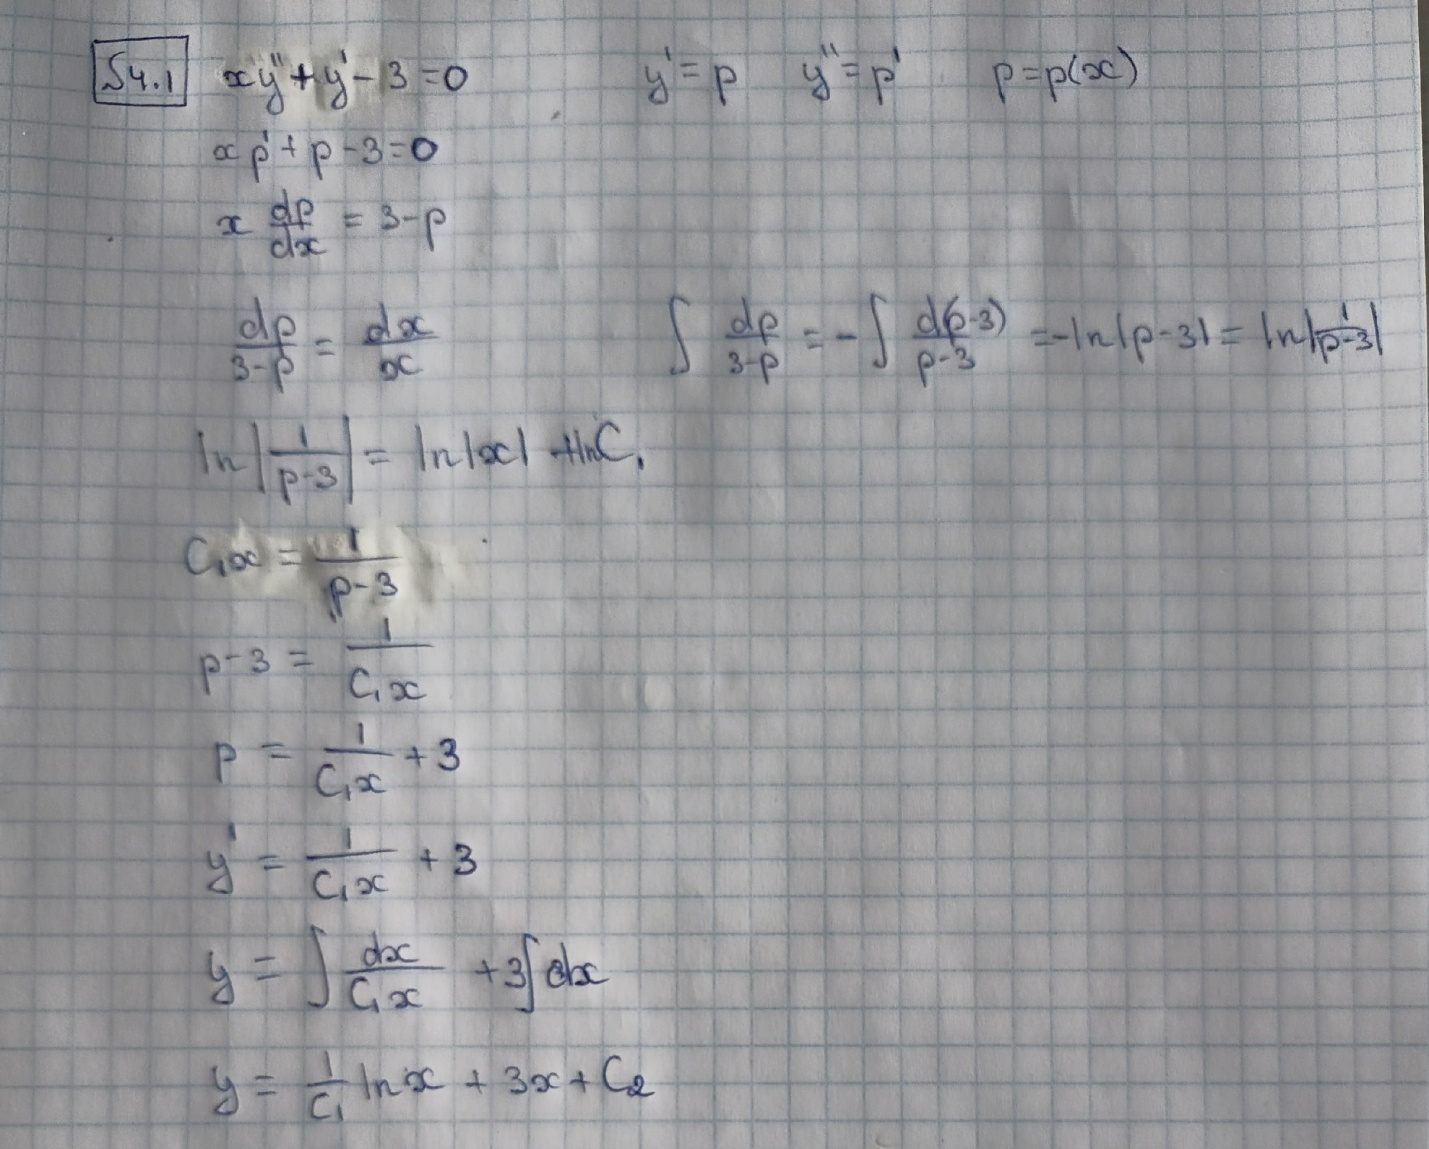 54.1 xy'' + y' - 3 = 0 y' = p y'' = p' p = p(x)
xp' + p - 3 = 0
x dp/dx = 3 - p
dp/(3-p) = dx/x ∫ dp/(3-p) = -∫ d(p-3)/(p-3) = -ln|p-3| = ln|1/(p-3)|
ln|1/(p-3)| = ln|x| + ln C₁
C₁x = 1/(p-3)
p - 3 = 1/(C₁x)
p = 1/(C₁x) + 3
y' = 1/(C₁x) + 3
y = ∫ dx/(C₁x) + 3∫dx
y = 1/C₁ ln x + 3x + C₂